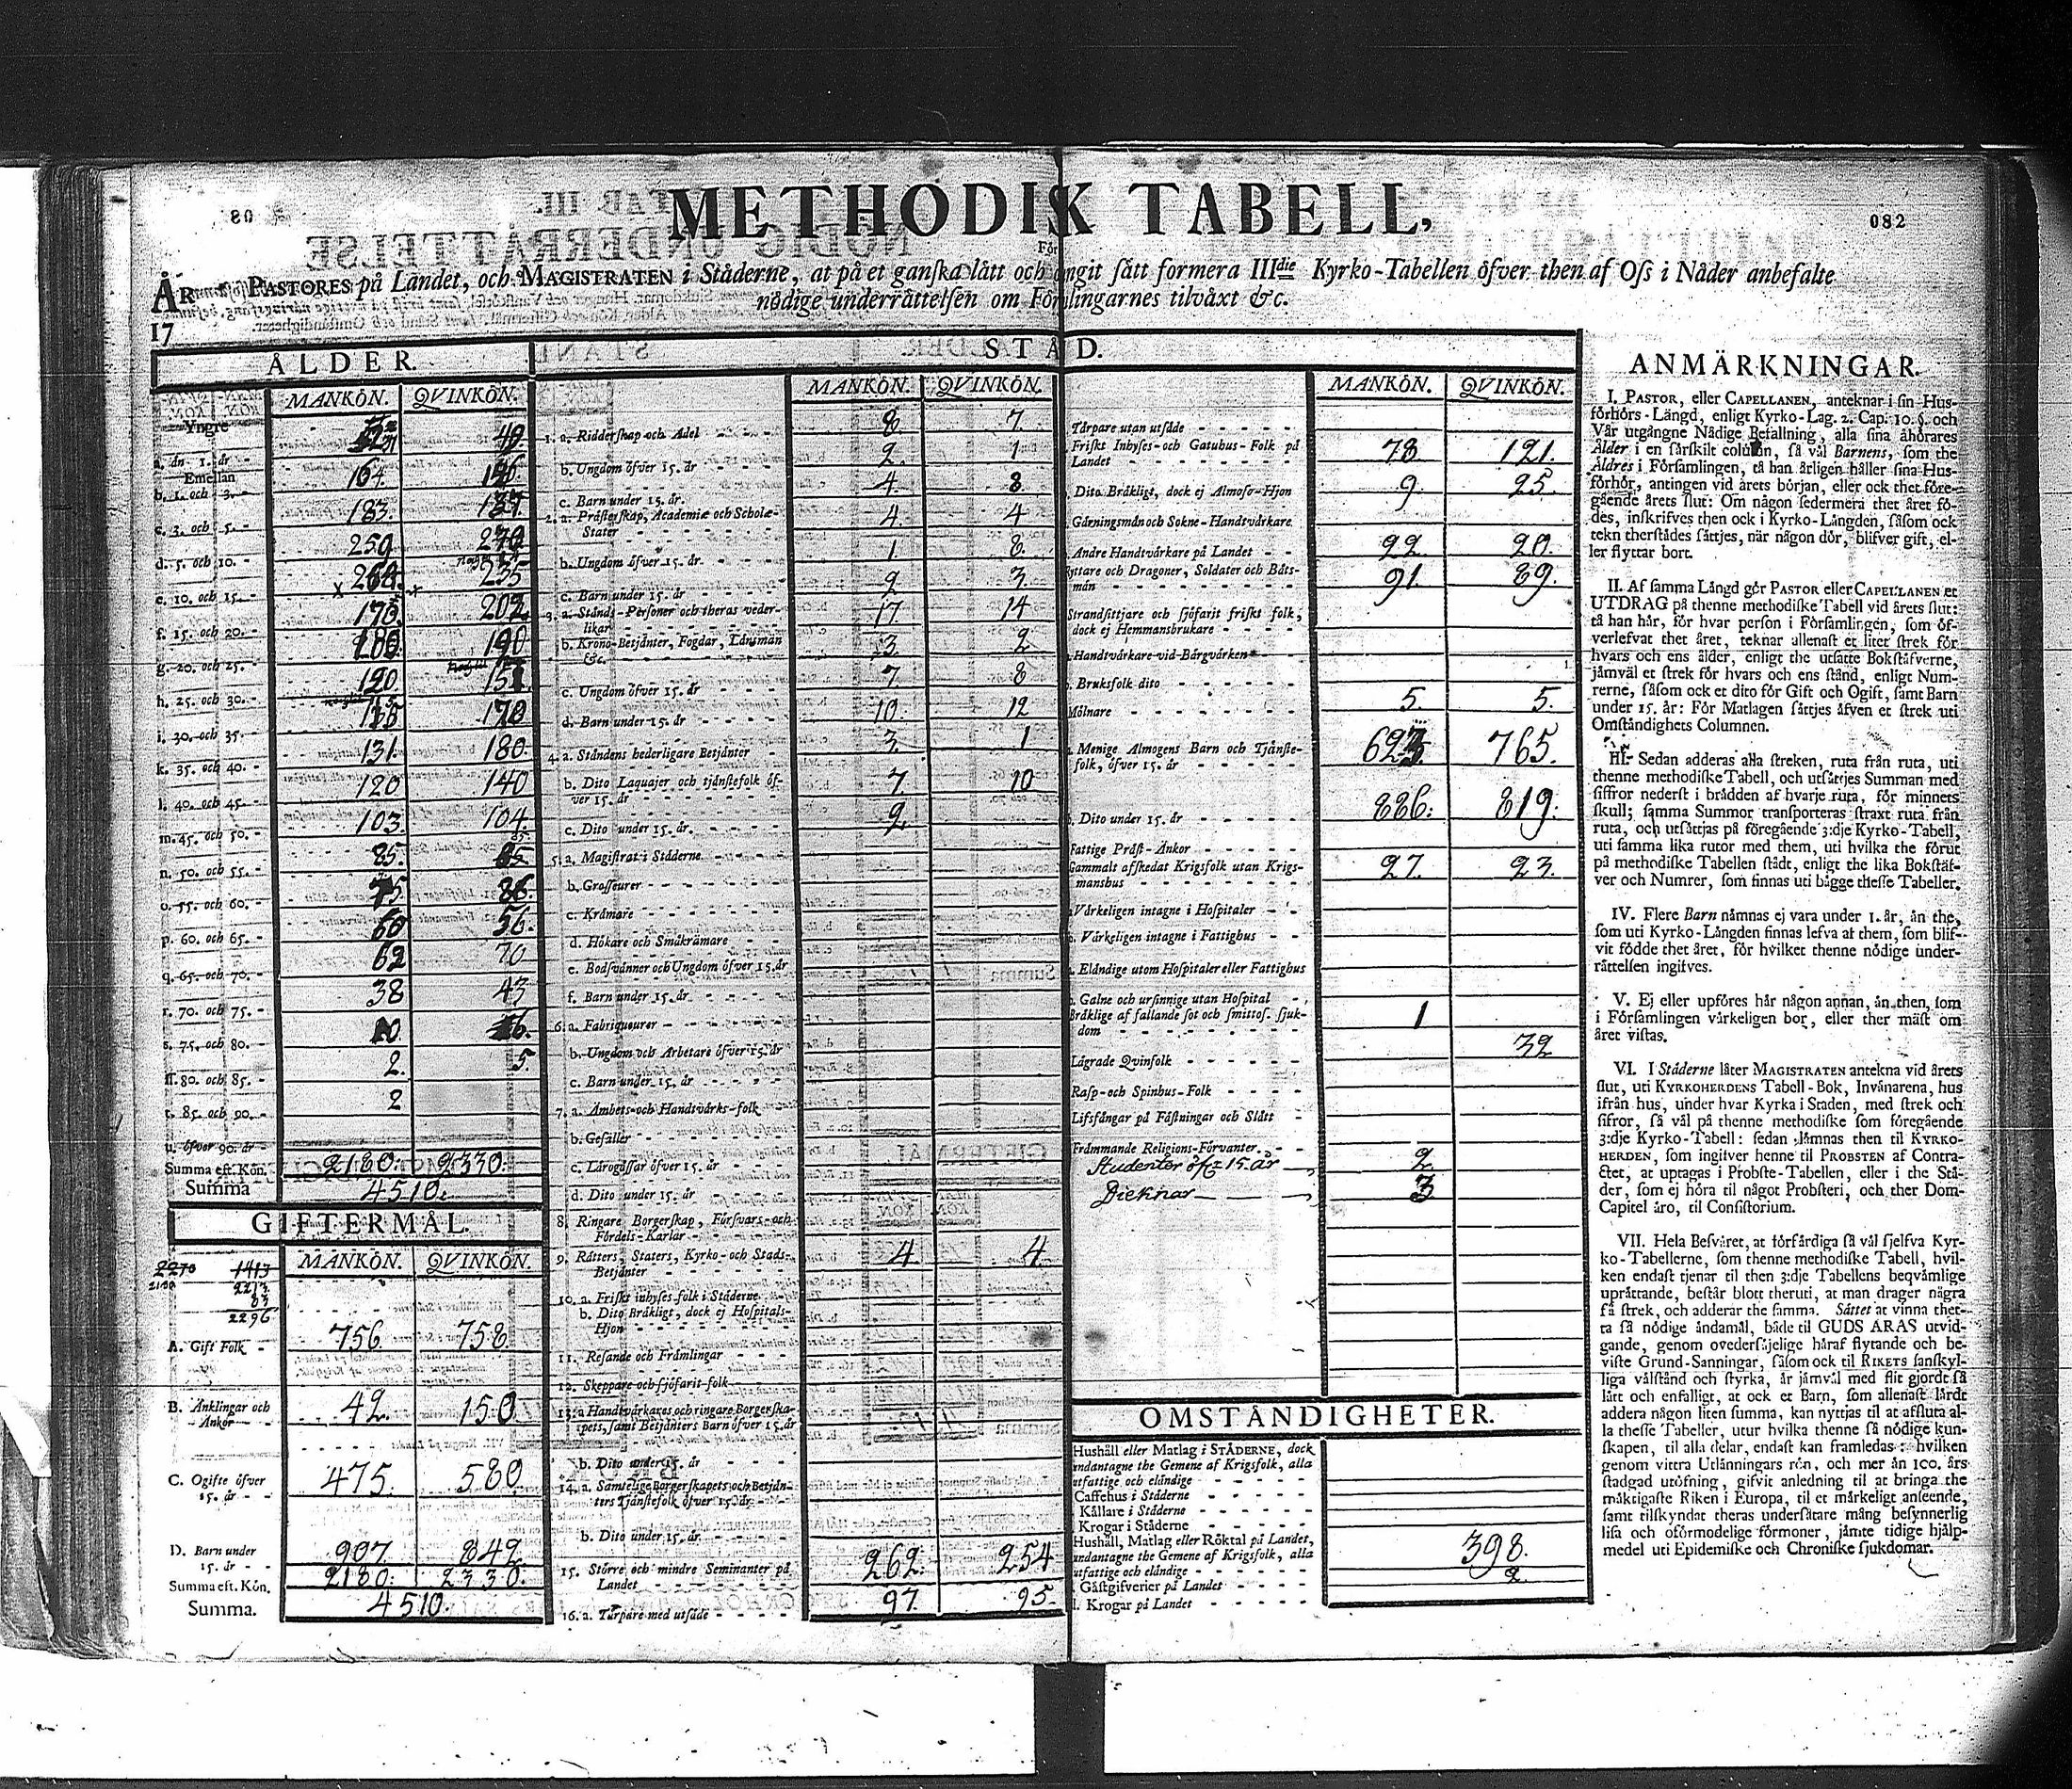 80
METHODIK TABELL,
082
För
PASTORES på Landet, och MAGISTRATEN i Ståderne, at på et ganska lått och ångit sått formera IIIdie Kyrko-Tabellen öfver then af Oss i Nåder anbefalte
nödige underråttelsen om Församlingarnes tilvåxt &c.
ÅR
17
ÅLDER.
MANKÖN. QVINKÖN.
Yngre
a. än 1. år 49.
Emellan
b. 1. och 3. 164.
c. 3. och 5. 183. 187.
d. 5. och 10. 259 270
e. 10. och 15. 268. 235
f. 15. och 20. 202.
g. 20. och 25. 180. 190
h. 25. och 30. 120 151.
i. 30. och 35. 170
k. 35. och 40. 131. 180.
l. 40. och 45. 120 140
m. 45. och 50. 103. 104
n. 50. och 55. 85. 85
o. 55. och 60. 75 86.
p. 60. och 65. 60 56.
q. 65. och 70. 62 70
r. 70. och 75. 38 43
s. 75. och 80.
ff. 80. och 85. 2. 5
t. 85. och 90. 2
u. öfver 90. år
Summa eft. Kön. 2180. 2330.
Summa 4510.
GIFTERMÅL.
MANKÖN. QVINKÖN.
2270 1413
2180 2213
83
2296
A. Gift Folk 756. 758.
B. Änklingar och
Änkor 42. 150
C. Ogifte öfver
15. år 475. 580
D. Barn under
15. år 907. 842
Summa eft. Kön. 2180. 2330.
Summa. 4510.
STÅD.
MANKÖN. QVINKÖN.
1. a. Ridderskap och Adel 8. 7.
b. Ungdom öfver 15. år 2. 1
c. Barn under 15. år. 4. 8.
2. a. Pråsterskap, Academiæ och Scholæ-
Stater 4. 4
b. Ungdom öfver 15. år. 1. 8.
c. Barn under 15. år 9. 3.
3. a. Stånds-Personer och theras veder-
likar 17 14
b. Krono-Betjånter, Fogdar, Lånsmån
&c. 3. 2
c. Ungdom öfver 15. år 7 8
d. Barn under 15. år 10. 12
4. a. Ståndens hederligare Betjånter 3. 1
b. Dito Laquajer och tjånstefolk öf-
ver 15. år 7. 10
c. Dito under 15. år. 2.
5. a. Magistrat i Ståderne.
b. Grosseurer
c. Kråmare
d. Hökare och Småkråmare
e. Bodsvånner och Ungdom öfver 15. år
f. Barn under 15. år.
6. a. Fabriqueurer
b. Ungdom och Arbetare öfver 15. år
c. Barn under 15. år
7. a. Åmbets- och Handtvårks-folk
b. Gesåller
c. Lårogåssar öfver 15. år
d. Dito under 15. år
8. Ringare Borgerskap, Försvars- och
Fördels-Karlar
9. Råtters, Staters, Kyrko- och Stads-
Betjånter 4. 4.
10. a. Friskt inhyses folk i Ståderne.
b. Dito Bråkligt, dock ej Hospitals-
Hjon
11. Resande och Fråmlingar
12. Skeppare och sjöfarit folk
13. a Handtvårkares och ringare Borgerska-
pets, samt Betjånters Barn öfver 15. år
b. Dito under 15. år
14. a. Samtelige Borgerskapets och Betjån-
ters Tjånstefolk öfver 15. år
b. Dito under 15. år.
15. Större och mindre Seminanter på
Landet 262. 254
16. a. Torpare med utsåde 97 95.
MANKÖN. QVINKÖN.
Torpare utan utsåde
Friskt Inhyses- och Gatuhus-Folk på
Landet 78 121.
Dito Bråkligt, dock ej Almoso-Hjon 9. 25.
Gårningsmån och Sokne-Handtvårkare.
Andre Handtvårkare på Landet 22. 20.
Ryttare och Dragoner, Soldater och Båts-
mån 91. 89.
Strandsittjare och sjöfarit friskt folk,
dock ej Hemmansbrukare
Handtvårkare vid Bårgvårken
Bruksfolk dito
Mölnare 5. 5.
Menige Almogens Barn och Tjånste-
folk, öfver 15. år 623. 765.
Dito under 15. år 886. 819.
Fattige Pråst-Ånkor
Gammalt afskedat Krigsfolk utan Krigs-
manshus 27. 23.
Vårkeligen intagne i Hospitaler
Vårkeligen intagne i Fattighus
Elåndige utom Hospitaler eller Fattighus
Galne och ursinnige utan Hospital
Bråklige af fallande sot och smittos. sjuk-
dom 1
Lågrade Qvinfolk 32
Rasp- och Spinhus-Folk
Lifsfångar på Fåstningar och Slått
Fråmmande Religions-Förvanter.
Studenter öfr 15. år 2.
Dieknar 3
OMSTÅNDIGHETER.
Hushåll eller Matlag i STÅDERNE, dock
undantagne the Gemene af Krigsfolk, alla
utfattige och elåndige
Caffehus i Ståderne
Kållare i Ståderne
Krogar i Ståderne
Hushåll, Matlag eller Röktal på Landet,
undantagne the Gemene af Krigsfolk, alla
utfattige och elåndige 398.
Gåstgifverier på Landet 2
l. Krogar på Landet
ANMÄRKNINGAR.
I. PASTOR, eller CAPELLANEN, anteknar i sin Hus-
förhörs-Långd, enligt Kyrko-Lag. 2. Cap. 10. §. och
Vår utgångne Nådige Befallning, alla sina åhörares
Ålder i en sårskilt colum̄n, så vål Barnens, som the
Äldres i Församlingen, tå han årligen håller sina Hus-
förhör, antingen vid årets början, eller ock thet före-
gående årets slut: Om någon sedermera thet året fö-
des, inskrifves then ock i Kyrko-Långden, såsom ock
tekn therstådes såttjes, når någon dör, blifver gift, el-
ler flyttar bort.
II. Af samma Långd gör PASTOR eller CAPELLANEN et
UTDRAG på thenne methodiske Tabell vid årets slut:
tå han hår, för hvar person i Församlingen, som öf-
verlefvat thet året, teknar allenast et litet strek för
hvars och ens ålder, enligt the utsatte Bokståfverne,
jåmvål et strek för hvars och ens stånd, enligt Num-
rerne, såsom ock et dito för Gift och Ogift, samt Barn
under 15. år: För Matlagen såttjes åfven et strek uti
Omståndighets Columnen.
III. Sedan adderas alla streken, ruta från ruta, uti
thenne methodiske Tabell, och utsåttjes Summan med
siffror nederst i brådden af hvarje ruta, för minnets
skull; samma Summor transporteras straxt ruta från
ruta, och utsåttjas på föregående 3:dje Kyrko-Tabell,
uti samma lika rutor med them, uti hvilka the förut
på methodiske Tabellen stådt, enligt the lika Bokståf-
ver och Numrer, som finnas uti bågge thesse Tabeller.
IV. Flere Barn nåmnas ej vara under 1. år, ån the,
som uti Kyrko-Långden finnas lefva af them, som blif-
vit födde thet året, för hvilket thenne nödige under-
råttelsen ingifves.
V. Ej eller upföres hår någon annan, ån then, som
i Församlingen vårkeligen bor, eller ther måst om
året vistas.
VI. I Ståderne låter MAGISTRATEN antekna vid årets
slut, uti KYRKOHERDENS Tabell-Bok, Invånarena, hus
ifrån hus, under hvar Kyrka i Staden, med strek och
sifror, så vål på thenne methodiske som föregående
3:dje Kyrko-Tabell: sedan låmnas then til KYRKO-
HERDEN, som ingifver henne til PROBSTEN af Contra-
ctet, at uptagas i Probste-Tabellen, eller i the Stå-
der, som ej höra til något Probsteri, och ther Dom-
Capitel åro, til Consistorium.
VII. Hela Besvåret, at förfårdiga så vål sjelfva Kyr-
ko-Tabellerne, som thenne methodiske Tabell, hvil-
ken endast tjenar til then 3:dje Tabellens beqvåmlige
upråttande, beståt blott theruti, at man drager några
få strek, och adderar the samma. Såttet at vinna thet-
ta så nödige åndamål, både til GUDS ÅRAS utvid-
gande, genom ovedersåjelige håraf flytande och be-
viste Grund-Sanningar, såsom ock til RIKETS sanskyl-
liga vålstånd och styrka, år jåmvål med flit gjordt så
lått och enfalligt, at ock et Barn, som allenast lårdt
addera någon liten summa, kan nyttjas til at afsluta al-
la thesse Tabeller, utur hvilka thenne så nödige kun-
skapen, til alla delar, endast kan framledas: hvilken
genom vittra Utlånningars rön, och mer ån 100. års
stadgad utöfning, gifvit anledning til at bringa the
måktigaste Riken i Europa, til et mårkeligt anseende,
samt tilskyndat theras undersåtare mång besynnerlig
lisa och oförmodelige förmoner, jåmte tidige hjålp-
medel uti Epidemiske och Chroniske sjukdomar.